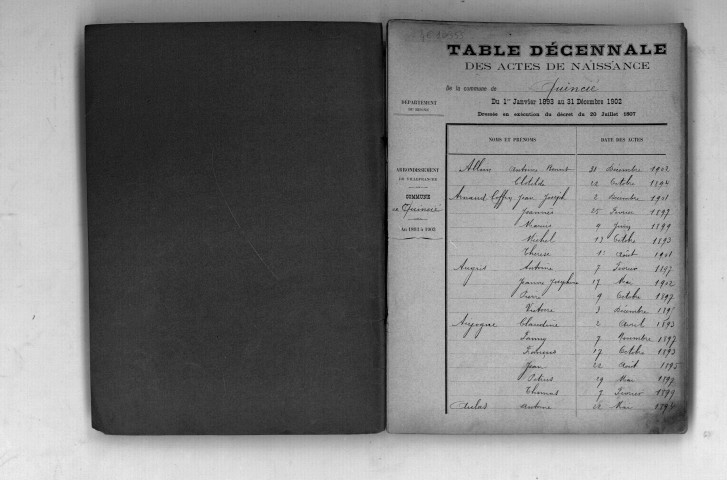 TABLE DÉCENNALE
DES ACTES DE NAISSANCE
De la commune de Quincié
Du 1er Janvier 1893 au 31 Décembre 1902
Dressée en exécution du décret du 20 Juillet 1807
DÉPARTEMENT
DU RHÔNE
ARRONDISSEMENT
DE VILLEFRANCHE
COMMUNE
de Quincié
An 1893 à 1902
NOMS ET PRÉNOMS DATE DES ACTES
Antoine Benoit 31 Décembre 1902
Clotilde 22 Octobre 1894
Arnaud Coffin Jean Joseph 2 Décembre 1901
Joannès 25 Février 1897
9 Juin 1899
Michel 13 Octobre 1893
Thérèse 11 Août 1901
Augris Antoine 7 Février 1897
Jeanne Joséphine 17 Mai 1902
Pierre 9 Octobre 1897
Victoire 3 Décembre
Claudine 2 Avril 1893
Fanny 7 Novembre 1897
François 17 Octobre 1893
Jean 22 Août 1895
29 Mai
Thomas 7 Février 1899
Aulas Antoine 22 Mai